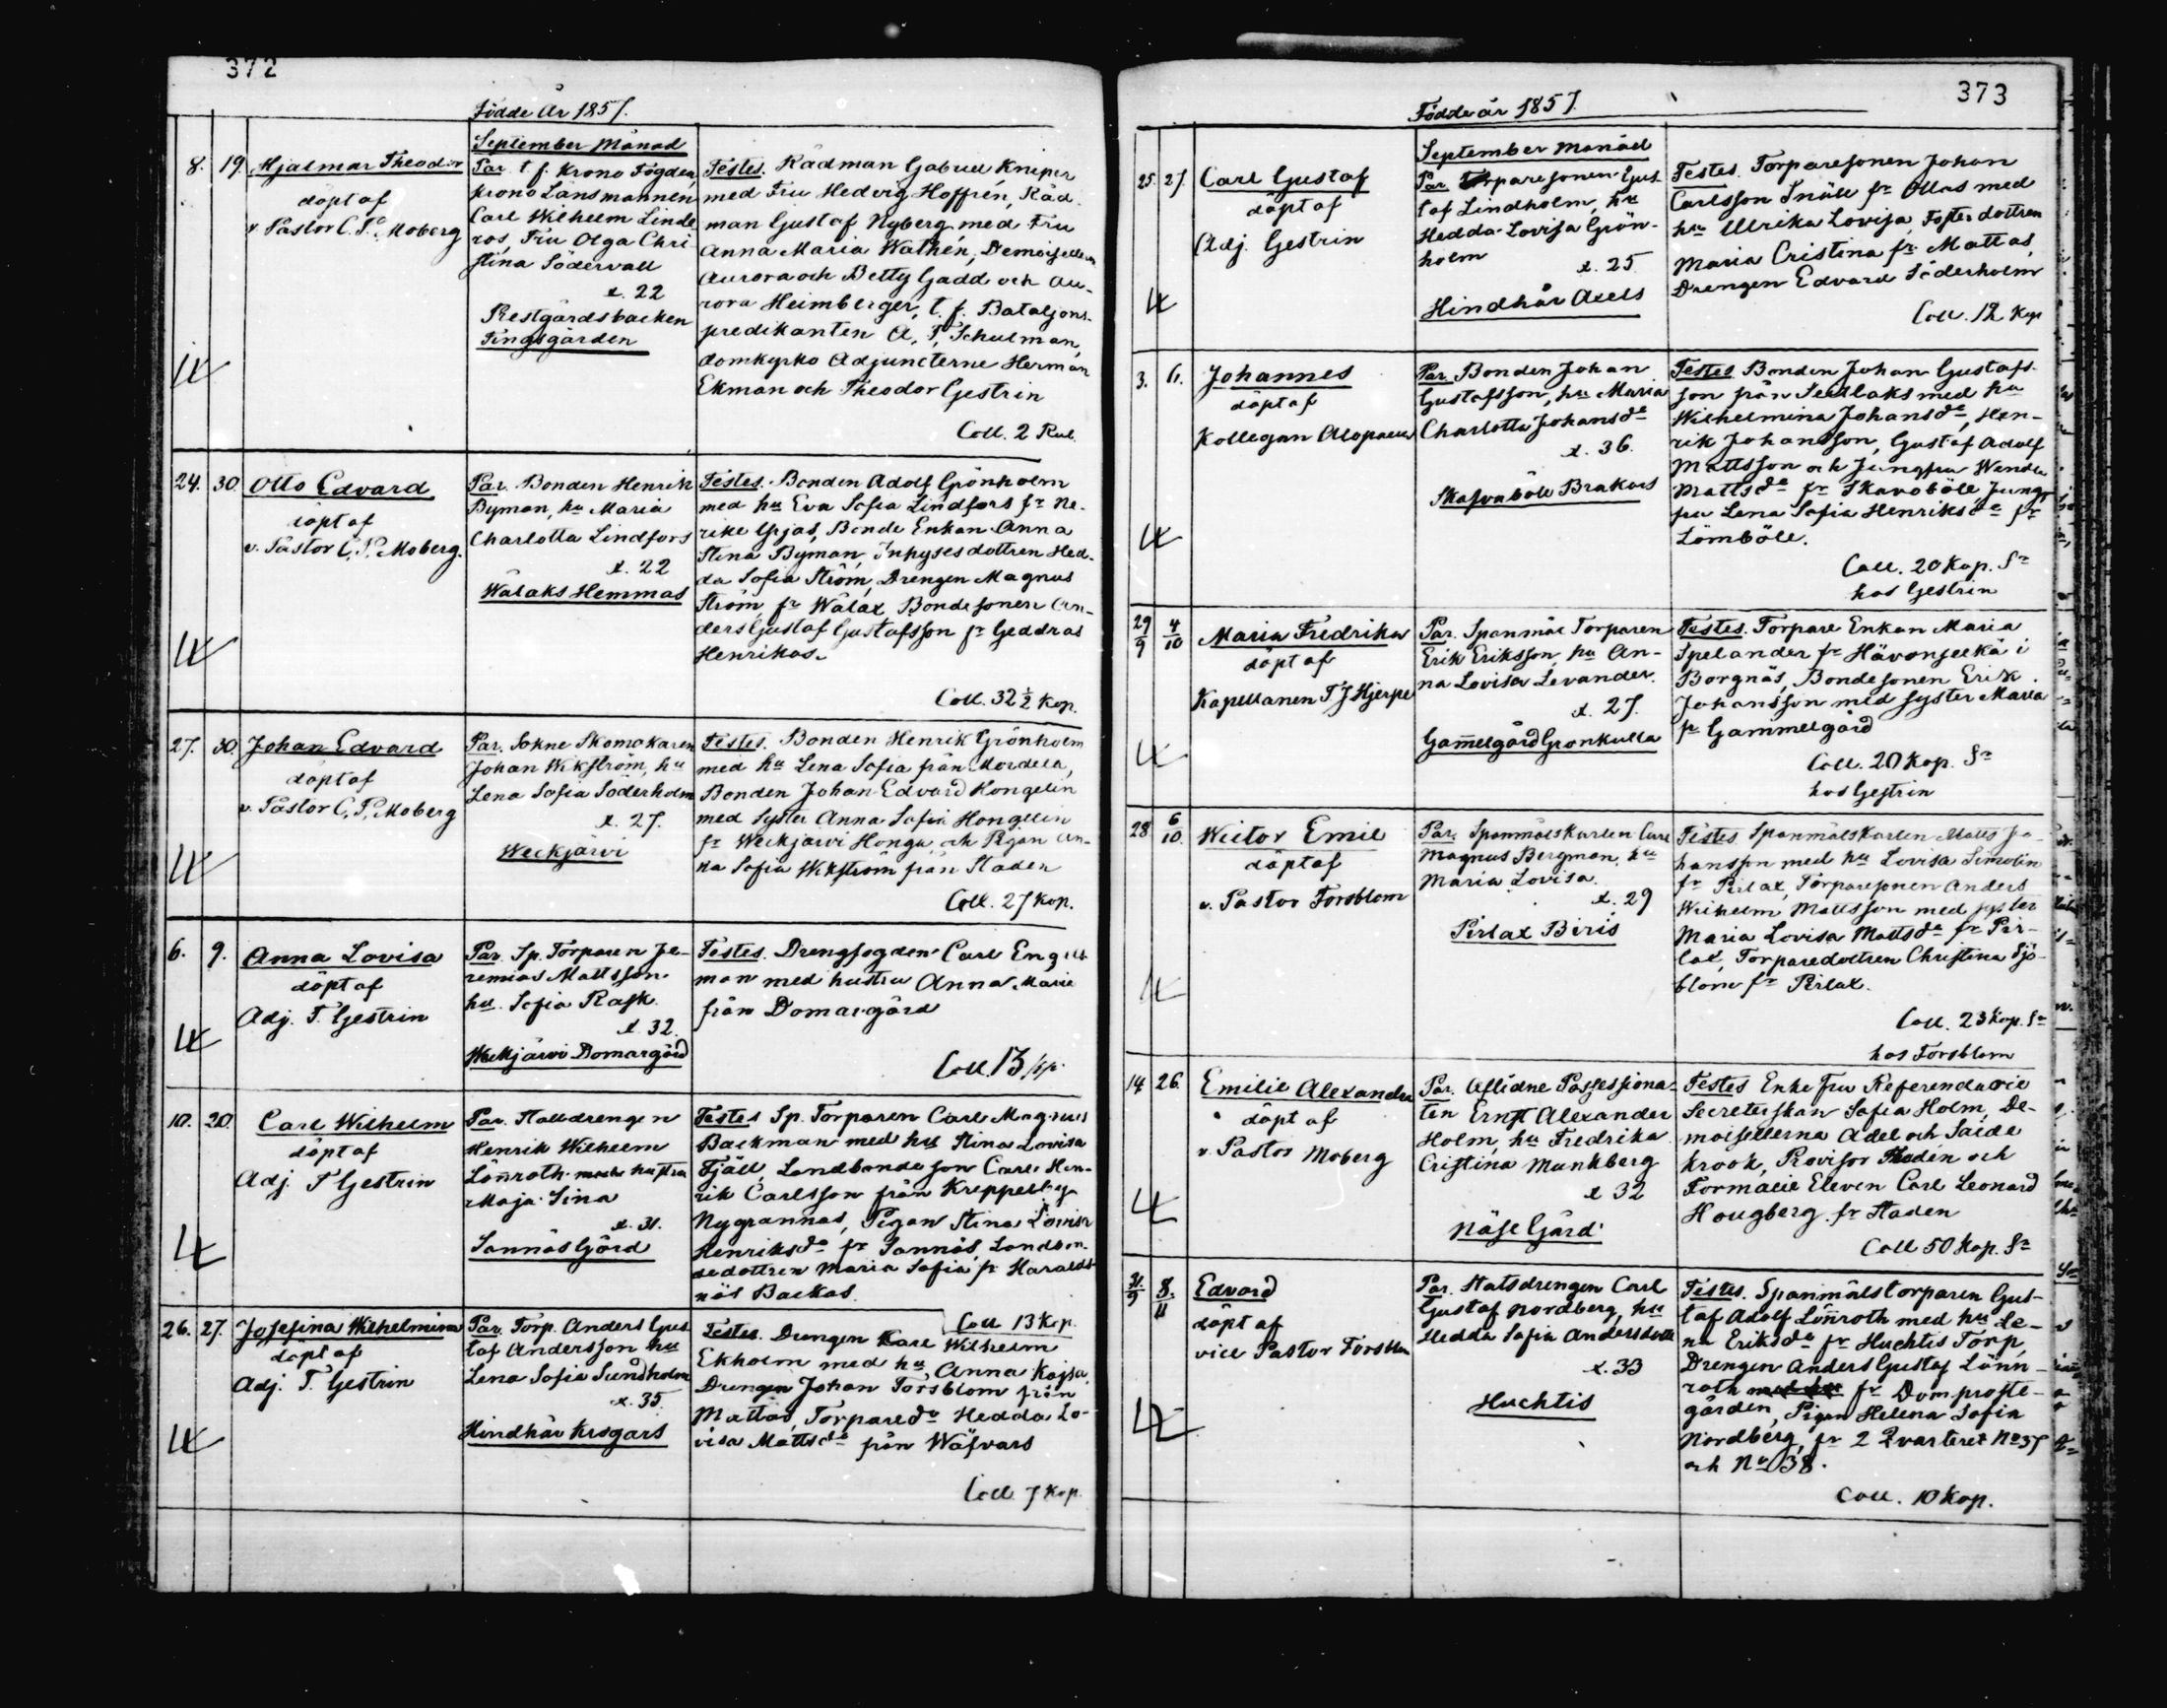 372
Födde År 1857.
September Månad
8. 19. Hjalmar Theodor
döpt af
v. Pastor C. P. Moberg
Par. t. f. Krono Fogden,
Krono Länsmannen
Carl Wilhelm Linde
ros, Fru Olga Chri
stina Södervall
æ. 22
Prestgårdsbacken
Tingsgården
Testes. Rådman Gabriel Kniper
med Fru Hedvig Hoffrén, Råd
man Gustaf Nyberg med Fru
Anna Maria Wathén, Demoisellerna
Aurora och Betty Gadd och Au-
rora Heimberger, t. f. Bataljons-
predikanten A. F. Schulman,
domkyrko Adjuncterne Herman
Ekman och Theodor Gestrin
Coll. 2 Rub.
24. 30. Otto Edvard
döpt af
v. Pastor C. P. Moberg.
Par. Bonden Henrik
Byman, hu Maria
Charlotta Lindfors
æ. 22
Wålaks Hemmas
Testes. Bonden Adolf Grönholm
med hu Eva Sofia Lindfors fr Ne-
rike Gjas, Bonde Enkan Anna
Stina Byman, Inhyses dottren Hed-
da Sofia Ström, Drengen Magnus
Ström, fr Wålax Bondesonen An-
ders Gustaf Gustafsson fr Geddras
Henrikas.
Coll. 32 ½ Kop.
27. 30. Johan Edvard
döpt af
v. Pastor C. P. Moberg
Par. Sokne Skomakaren
Johan Wikström, hu
Lena Sofia Söderholm
æ. 27.
Weckjärvi
Testes. Bonden Henrik Grönholm
med hu Lena Sofia från Mordela,
Bonden Johan Edvard Hongelin
med Syster Anna Sofia Hongelin
fr Weckjärvi Honga, och Pigan An-
na Sofia Wikström från Staden
Coll. 27 Kop.
6. 9. Anna Lovisa
döpt af
Adj. T. Gestrin
Par. Sp. Torparen Je-
remias Mattsson
hu. Sofia Rask
æ. 32.
Weckjärvi Domargård
Testes. Drengfogden Carl Eng
man med hustru Anna Marie
från Domargård
Coll. 13 kp.
10. 20. Carl Wilhelm
döpt af
Adj. T Gestrin
Par. Stalldrengen
Henrik Wilhelm
Lönroth hustru
Maja Sina
æ. 31.
Sannäs Gård
Testes Sp. Torparen Carl Magnus
Backman med hu Stina Lovisa
Fjäll, Landbonde son Carl Hen-
rik Carlsson från Kreppelby
Nygrannas, Pigan Stina Lovisa
Henriksda fr Sannäs, Landbon-
dedottren Maria Sofia fr Haralds
näs Backas.
Coll 13 Kop.
26. 27. Josefina Wilhelmina
döpt af
Adj. T. Gestrin
Par. Torp. Anders Gus
taf Andersson hu
Lena Sofia Sundholm
æ. 35.
Hindhår Krogars
Testes. Drengen Karl Wilhelm
Ekholm med hu Anna Kajsa,
Drengen Johan Forsblom från
Mattas, Torpareda Hedda Lo-
visa Mattsda från Wäfvars
Coll. 7 Kop.
373
Födde år 1857.
September Månad
25. 27. Carl Gustaf
döpt af
Adj. Gestrin
Par Torparesonen Gus-
taf Lindholm, hu
Hedda Lovisa Grön-
holm
æ. 25.
Hindhår Axels
Testes. Torparesonen Johan
Carlsson Snäll fr Ollas med
hu Ulrika Lovisa, Fosterdottren
Maria Cristina fr Mattas,
Drengen Edvard Söderholm
Coll. 12 Kop
3. 6. Johannes
döpt af
Kollegan Alopæus
Par. Bonden Johan
Gustafsson, hu Maria
Charlotta Johansda
æ. 36.
Skafvaböle Brakars
Testes Bonden Johan Gustafs-
son från Seitlaks med hu
Wilhelmina Johansda, Hen-
rik Johansson, Gustaf Adolf
Mattsson och Jungfru Wendla
Mattsda fr Skavaböle, Jung-
fru Lena Sofia Henriksda fr
Lömböle.
Coll. 20 Kop. Sr
hos Gestrin
29/9 4/10 Maria Fredrika
döpt af
Kapellanen T J Hjerpe
Par. Spanmåls Torparen
Erik Eriksson, hu An-
na Lovisa Levander.
æ. 27.
Gam̄elgård Gronkulla
Testes. Torpare Enkan Maria
Spelander fr Hävonselkä i
Borgnäs, Bondesonen Erik
Johansson med syster Maria
fr Gammelgård
Coll. 20 Kop. Sr
hos Gestrin
28 6/10. Wictor Emil
döpt af
v. Pastor Forsblom
Par. Spanmålskarlen Carl
Magnus Bergman, hu
Maria Lovisa.
æ. 29
Pirlax Biris
Testes Spanmålskarlen Matts Jo-
hansson med hu Lovisa Simolin
fr Pirlax, Torparesonen Anders
Wilhelm Mattsson med syster
Maria Lovisa Mattsda fr Pir-
lax, Torparedottren Christina Sjö-
blom fr Pirlax.
Coll. 23 Kop. Sr
hos Forsblom
14 26. Emilie Alexandra
döpt af
v. Pastor Moberg
Par. Aflidne Possessiona-
ten Ernst Alexander
Holm, hu Fredrika
Cristina Munkberg
æ 32
Näse Gård
Testes Enke Fru Referendarie
Secreterskan Sofia Holm, De-
moisellerna Adel och Saide
Krook, Provisor Thodén och
Formacie Eleven Carl Leonard
Hougberg fr Staden
Coll 50 Kop. Sr
8/11 Edvard
döpt af
vice Pastor Forsblom
Par. Statsdrengen Carl
Gustaf Nordberg, hu
Hedda Sofia Andersdotter
æ. 33
Huchtis
Testes. Spanmålstorparen Gus-
taf Adolf Lönroth med hu Le-
na Eriksda fr Huchtis Torp,
Drengen Anders Gustaf Lönn-
roth fr Domproste-
gården, Pigan Helena Sofia
Nordberg, fr 2 Qvarteret No 37
och No 38.
Coll. 10 Kop.